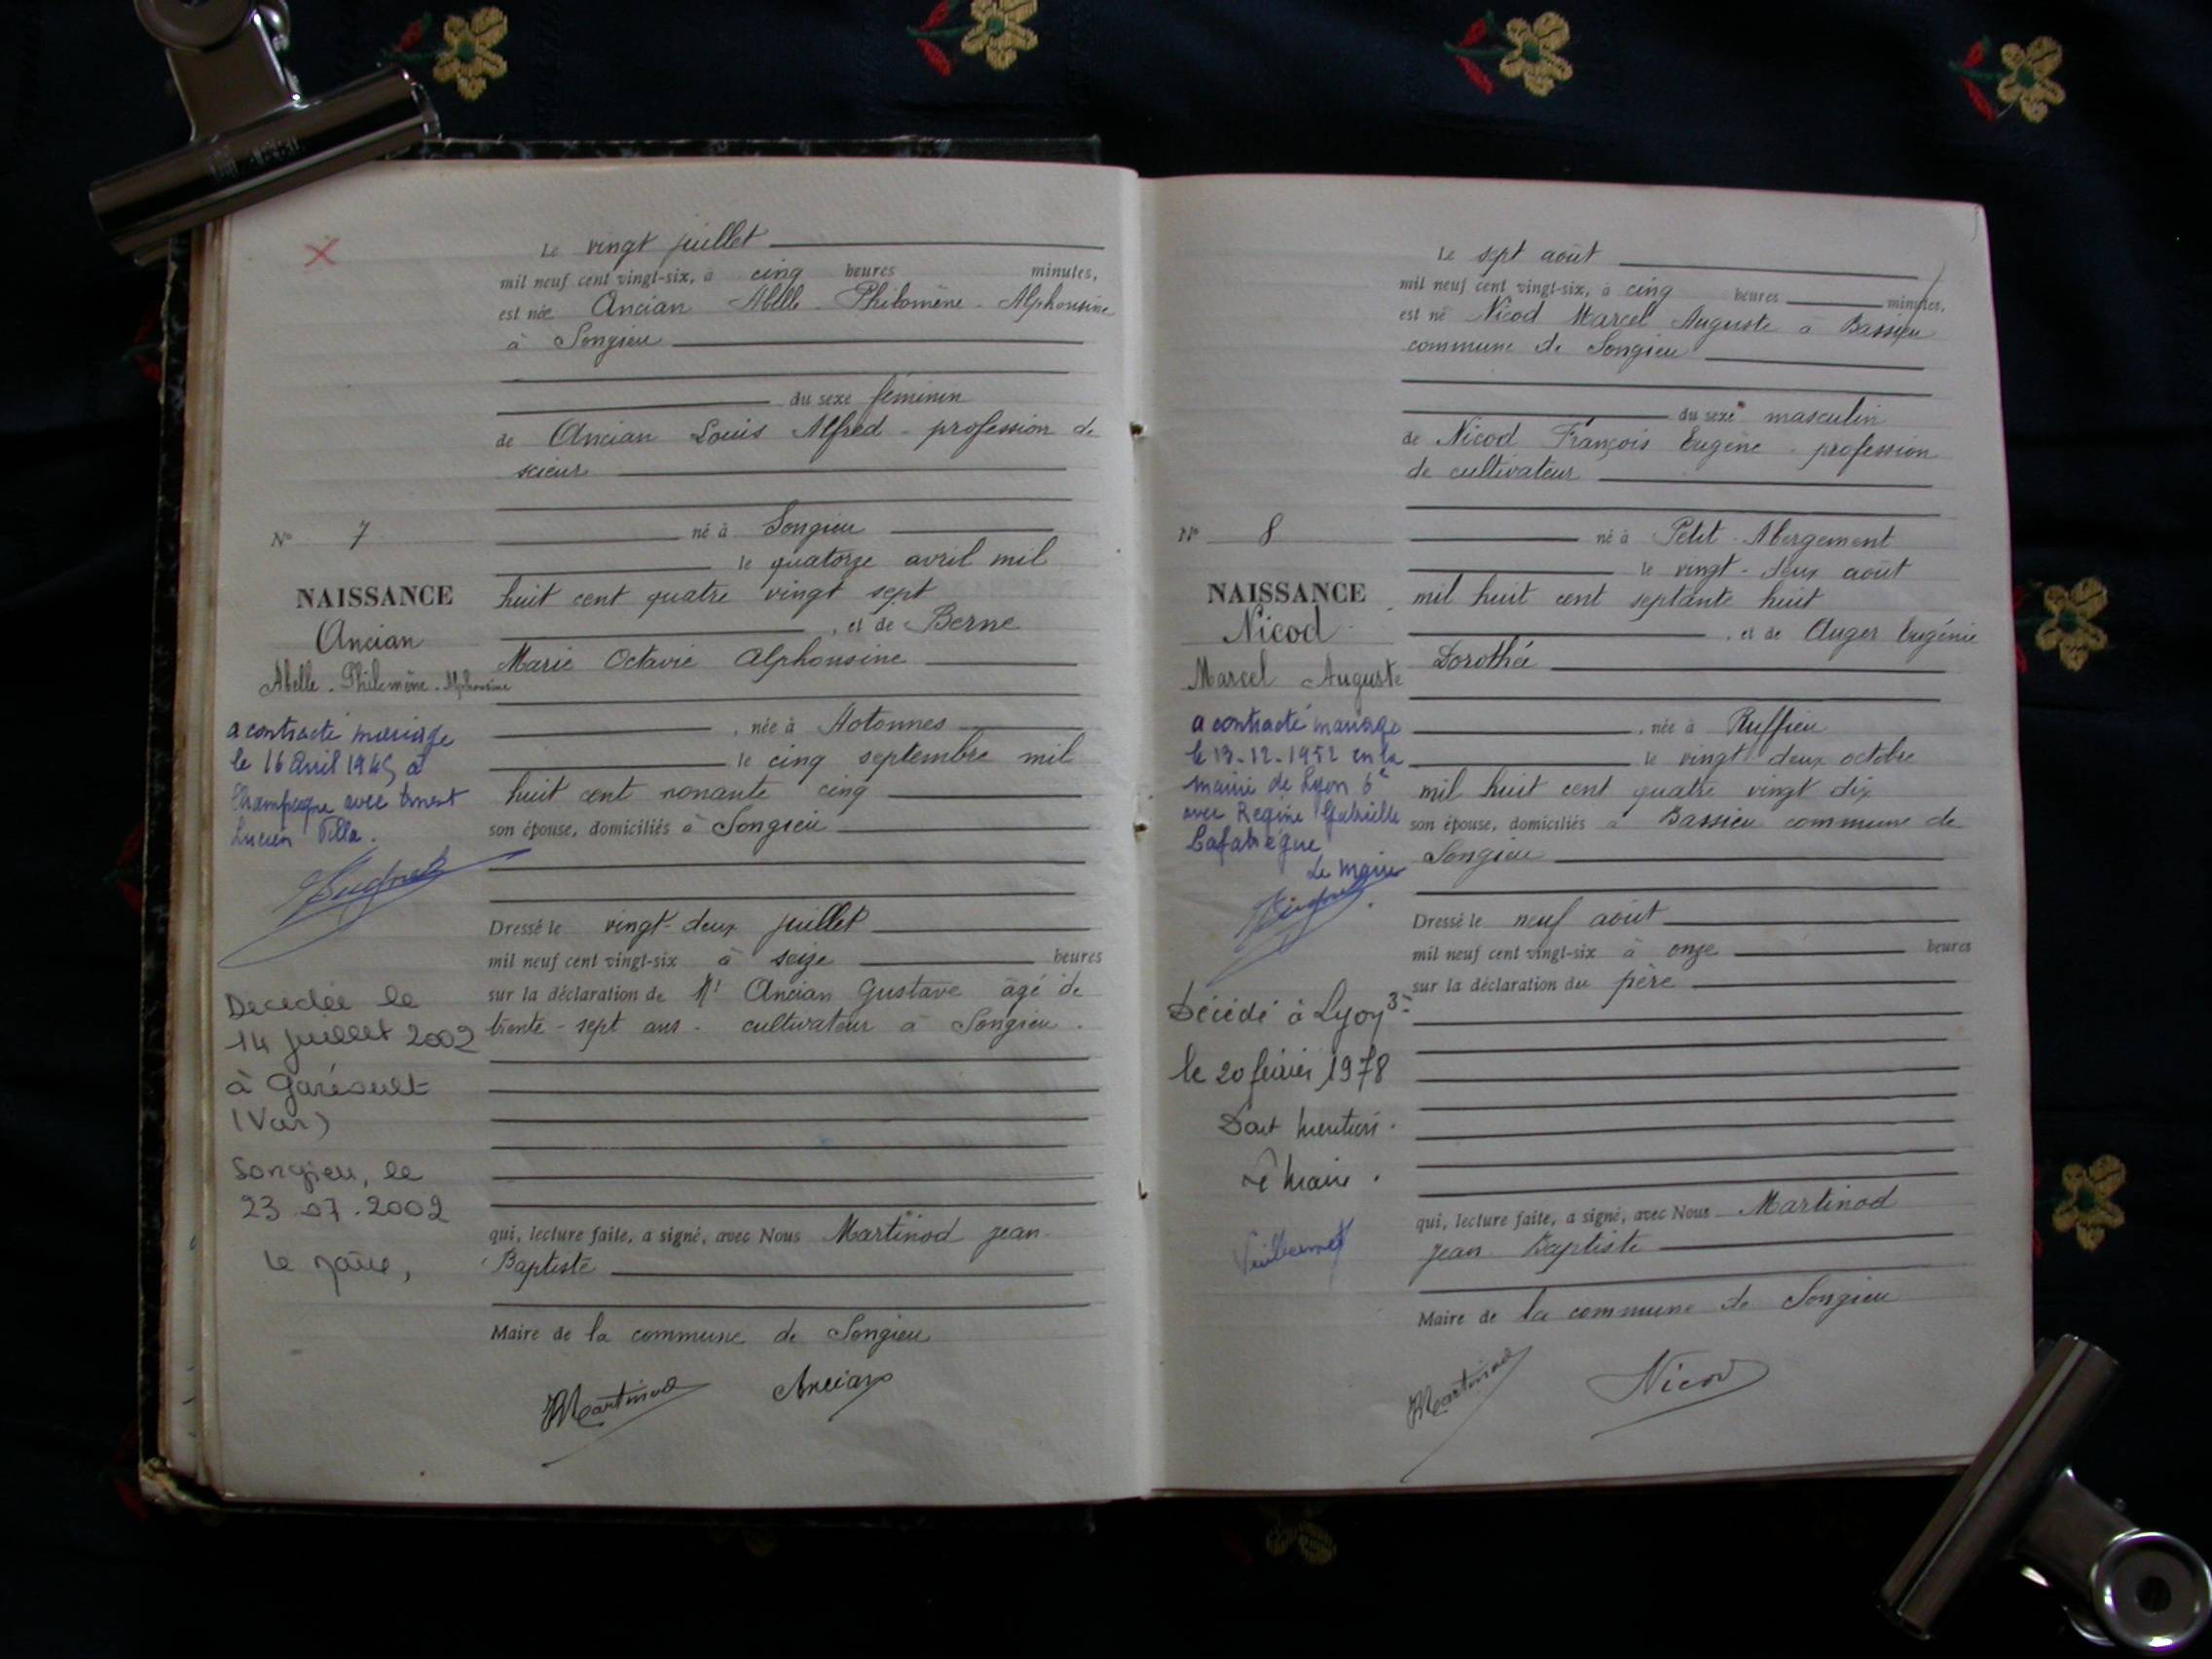 Le vingt juillet
mil neuf cent vingt-six, à cinq heures minutes,
est née Ancian Abelle - Philomène - Alphonsine
à Songieu
du sexe féminin
de Ancian Louis Alfred - profession de
scieur
né à Songieu
le quatorze avril mil
huit cent quatre vingt sept
, et de Berne
Marie Octavie Alphonsine
, née à Hotonnes
le cinq septembre mil
huit cent nonante cinq
son épouse, domiciliés à Songieu
Dressé le vingt-deux juillet
mil neuf cent vingt-six à seize heures
sur la déclaration de Mr Ancian Gustave âgé de
trente-sept ans - cultivateur à Songieu.
qui, lecture faite, a signé, avec Nous Martinod Jean-
Baptiste
Maire de la commune de Songieu
JMartinod Ancian
N° 7
NAISSANCE
Ancian
Abelle - Philomène - Alphonsine
a contracté mariage
le 16 Avril 1945 à
Champagne avec Ernest
Lucien Villa.
Décédée le
14 juillet 2002
à Garéoult
(Var)
Songieu, le
23.07.2002
Le Maire,
Le sept août
mil neuf cent vingt-six, à cinq heures minutes,
est né Nicod Marcel Auguste à Bassieu
commune de Songieu
du sexe masculin
de Nicod François Eugène - profession
de cultivateur
né à Petit-Abergement
le vingt-deux août
mil huit cent septante huit
, et de Auger Eugénie
Dorothée
, née à Ruffieu
le vingt deux octobre
mil huit cent quatre vingt dix
son épouse, domiciliés à Bassieu commune de
Songieu
Dressé le neuf août
mil neuf cent vingt-six à onze heures
sur la déclaration du père
qui, lecture faite, a signé, avec Nous Martinod
Jean Baptiste
Maire de la commune de Songieu
JMartinod Nicod
N° 8
NAISSANCE
Nicod
Marcel Auguste
a contracté mariage
le 13-12-1952 en la
mairie de Lyon 6e
avec Régine Gabrielle
Lafabrègue
Le Maire
Décédé à Lyon 3e
le 20 février 1978
Dont mention.
Le Maire.